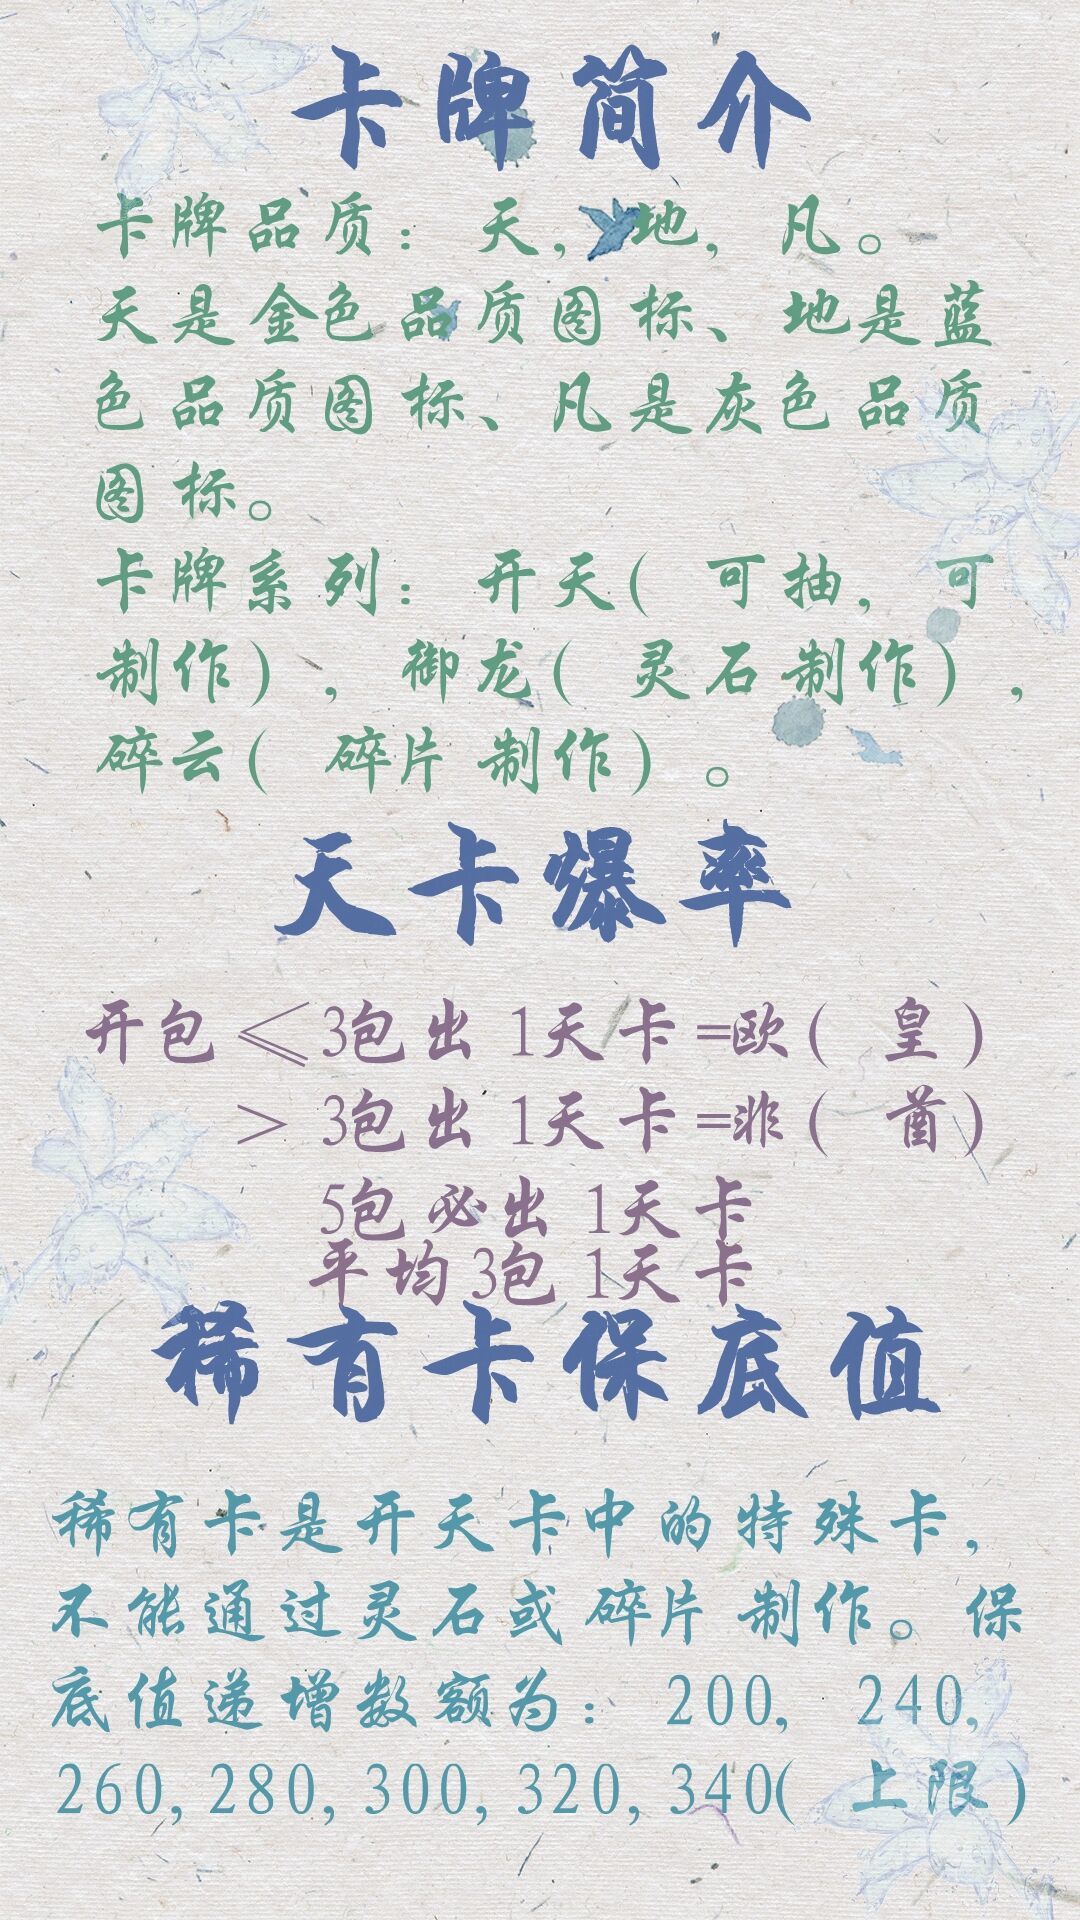 卡牌简介
卡牌品质：天，地，凡。
天是金色品质图标、地是蓝
色品质图标、凡是灰色品质
图标。
卡牌系列：开天（可抽，可
制作），御龙（灵石制作），
碎云（碎片制作）。
天卡爆率
开包≤3包出1天卡=欧（皇）
>3包出1天卡=非（酋）
5包必出1天卡
平均3包1天卡
稀有卡保底值
稀有卡是开天卡中的特殊卡，
不能通过灵石或碎片制作。保
底值递增数额为：200，240，
260,280,300,320,340（上限）